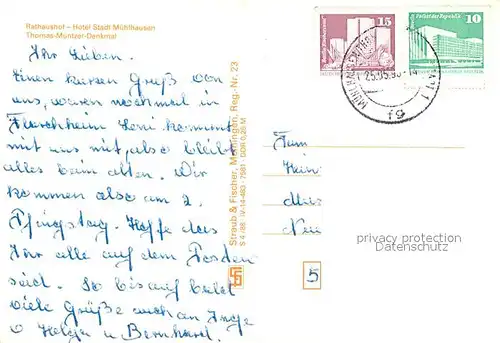 Rathaushof – Hotel Stadt Mühlhausen
Thomas-Müntzer-Denkmal
Ihr Lieben.
Einen kurzen Gruß von
uns, waren nochmal in
Flarchheim Leni kommt
mit uns mit, also bleibt
alles beim alten. Wir
kommen also am 2.
Pfingstag. Hoffe das
Ihr alle auf dem Posten
seid. So bis auf bald
viele Grüße auch an Inge
Helga u Bernhard.
Straub & Fischer, Meiningen, Reg.-Nr. 23
S 4/88 IV-14-483 7681 DDR 0,25 M
15
Palast der Republik
10
25.05.90-14
fg
Fam
Hein
Neu
5
privacy protection
Datenschutz